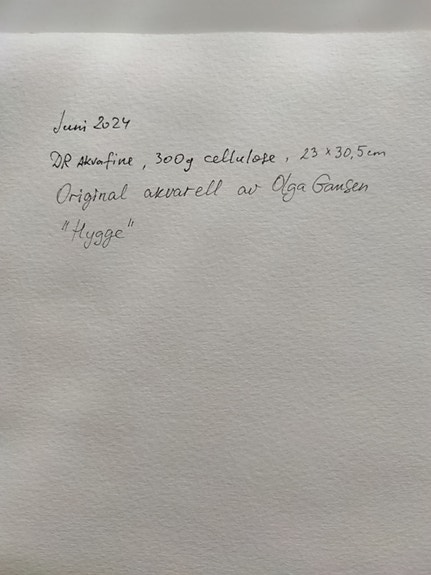 Juni 2024
DR Akvafine, 300g cellulose, 23 x 30,5 cm
Original akvarell av Olga Gansen
"Hygge"